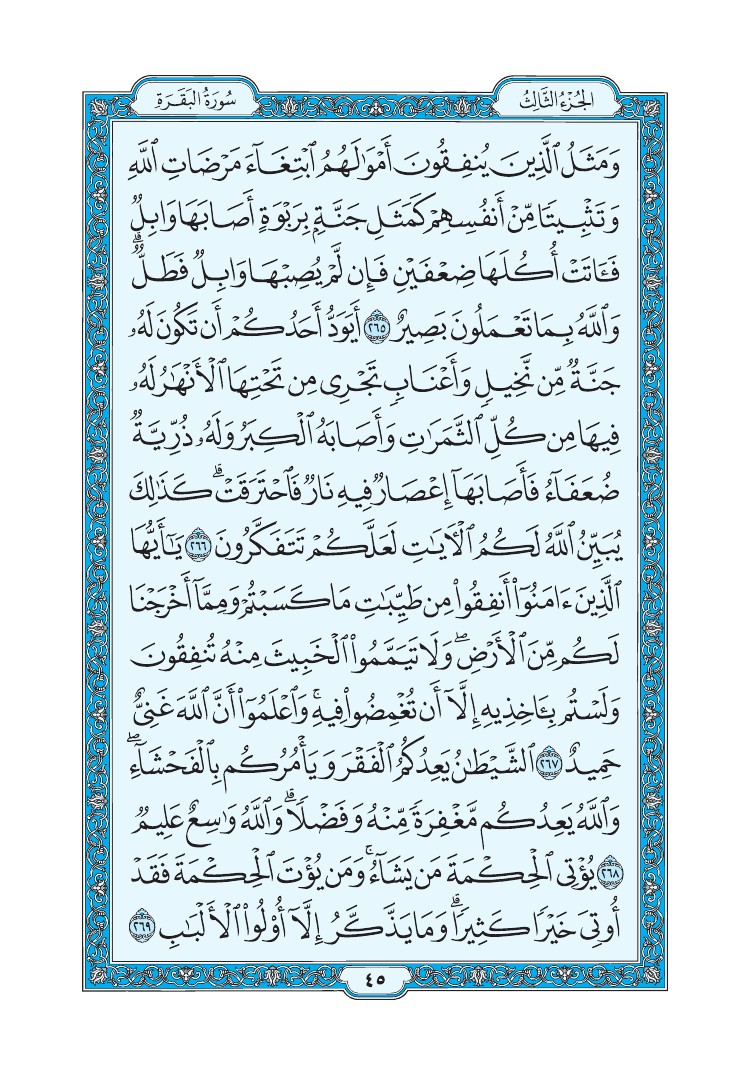 الجزء الثالث
سورة البقرة
وَمَثَلُ ٱلَّذِينَ يُنفِقُونَ أَمۡوَٰلَهُمُ ٱبۡتِغَآءَ مَرۡضَاتِ ٱللَّهِ
وَتَثۡبِيتٗا مِّنۡ أَنفُسِهِمۡ كَمَثَلِ جَنَّةِۭ بِرَبۡوَةٍ أَصَابَهَا وَابِلٞ
فَـَٔاتَتۡ أُكُلَهَا ضِعۡفَيۡنِ فَإِن لَّمۡ يُصِبۡهَا وَابِلٞ فَطَلّٞۗ
وَٱللَّهُ بِمَا تَعۡمَلُونَ بَصِيرٌ ٢٦٥ أَيَوَدُّ أَحَدُكُمۡ أَن تَكُونَ لَهُۥ
جَنَّةٞ مِّن نَّخِيلٖ وَأَعۡنَابٖ تَجۡرِي مِن تَحۡتِهَا ٱلۡأَنۡهَٰرُ لَهُۥ
فِيهَا مِن كُلِّ ٱلثَّمَرَٰتِ وَأَصَابَهُ ٱلۡكِبَرُ وَلَهُۥ ذُرِّيَّةٞ
ضُعَفَآءُ فَأَصَابَهَآ إِعۡصَارٞ فِيهِ نَارٞ فَٱحۡتَرَقَتۡۗ كَذَٰلِكَ
يُبَيِّنُ ٱللَّهُ لَكُمُ ٱلۡأٓيَٰتِ لَعَلَّكُمۡ تَتَفَكَّرُونَ ٢٦٦ يَٰٓأَيُّهَا
ٱلَّذِينَ ءَامَنُوٓاْ أَنفِقُواْ مِن طَيِّبَٰتِ مَا كَسَبۡتُمۡ وَمِمَّآ أَخۡرَجۡنَا
لَكُم مِّنَ ٱلۡأَرۡضِۖ وَلَا تَيَمَّمُواْ ٱلۡخَبِيثَ مِنۡهُ تُنفِقُونَ
وَلَسۡتُم بِـَٔاخِذِيهِ إِلَّآ أَن تُغۡمِضُواْ فِيهِۚ وَٱعۡلَمُوٓاْ أَنَّ ٱللَّهَ غَنِيٌّ
حَمِيدٌ ٢٦٧ ٱلشَّيۡطَٰنُ يَعِدُكُمُ ٱلۡفَقۡرَ وَيَأۡمُرُكُم بِٱلۡفَحۡشَآءِۖ
وَٱللَّهُ يَعِدُكُم مَّغۡفِرَةٗ مِّنۡهُ وَفَضۡلٗاۗ وَٱللَّهُ وَٰسِعٌ عَلِيمٞ
٢٦٨ يُؤۡتِي ٱلۡحِكۡمَةَ مَن يَشَآءُۚ وَمَن يُؤۡتَ ٱلۡحِكۡمَةَ فَقَدۡ
أُوتِيَ خَيۡرٗا كَثِيرٗاۗ وَمَا يَذَّكَّرُ إِلَّآ أُوْلُواْ ٱلۡأَلۡبَٰبِ ٢٦٩
٤٥